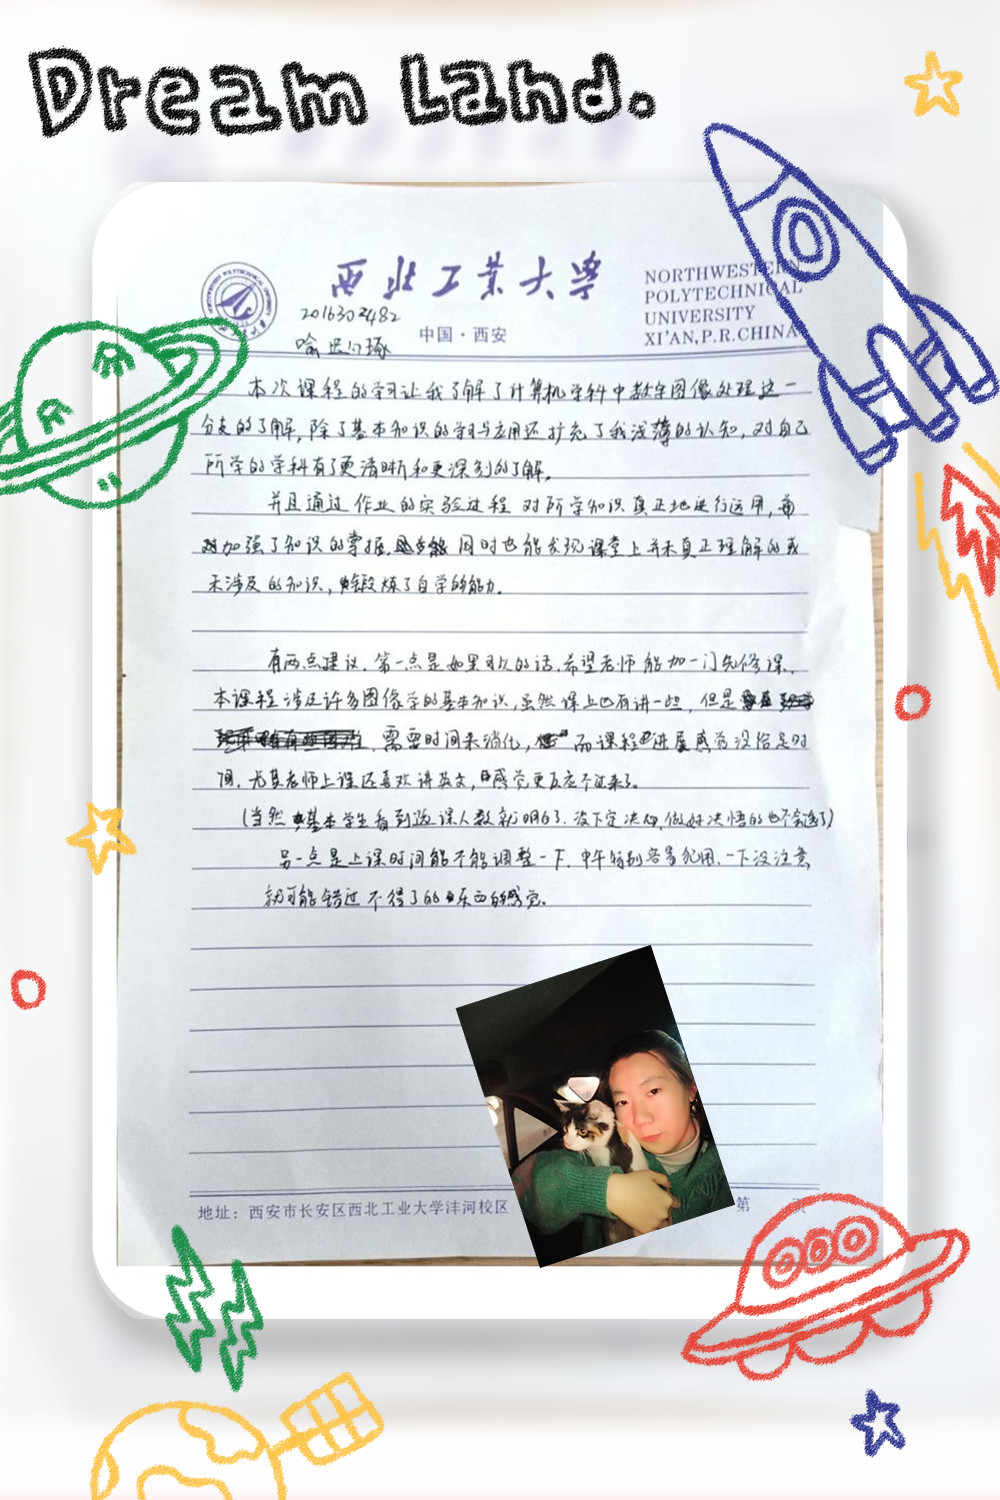 Dream Land.
西北工业大学
NORTHWESTERN
POLYTECHNICAL
UNIVERSITY
XI'AN,P.R.CHINA
2016302482
中国·西安
喻
本次课程的学习让我了解了计算机学科中数字图像处理这一
分支的了解,除了基本知识的学习与应用还扩充了我浅薄的认知,对自己
所学的学科有了更清晰和更深刻的了解。
并且通过作业的实验过程对所学知识真正地进行运用,
加强了知识的掌握,同时也能发现课堂上并未真正理解的或
未涉及的知识,锻炼了自学的能力。
有两点建议,第一点是如果可以的话,希望老师能加一门先修课,
本课程涉及许多图像学的基本知识,虽然课上也有讲一些,但是
需要时间来消化,而课程进展感觉没给足时
间,尤其老师上课还喜欢讲英文,感觉更反应不过来了。
(当然基本学生看到选课人数就明白了,没下定决心,做好决悟的也不会选了)
另一点是上课时间能不能调整一下,中午特别容易犯困,一下没注意
就可能错过不得了的东西的感觉。
地址:西安市长安区西北工业大学沣河校区
第 页